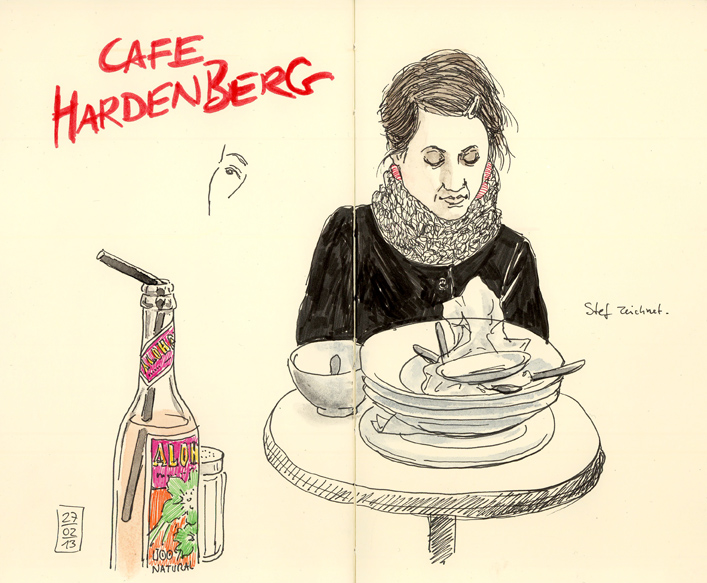 CAFE
HARDENBERG
Stef zeichnet.
ALOH
100%
NATURAL
27
02
13